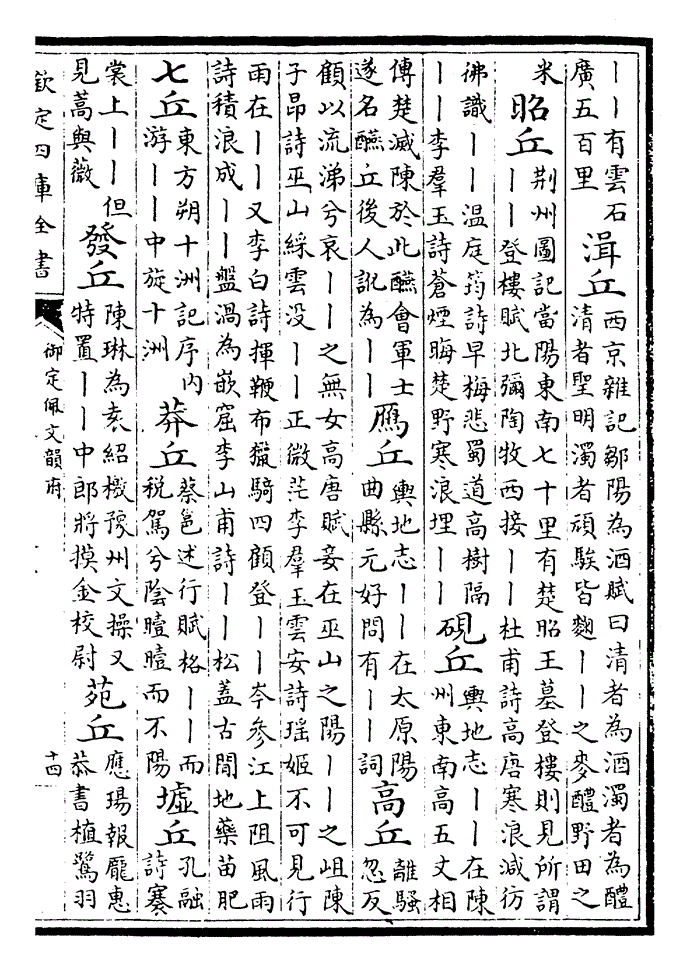 丨丨有雲石
廣五百里
湒丘
西京雜記鄒陽為酒賦曰清者為酒濁者為醴
清者聖明濁者頑騃皆麴丨丨之麥醴野田之
米
昭丘
荆州圖記當陽東南七十里有楚昭王墓登樓則見所謂
丨丨登樓賦北彌陶牧西接丨丨杜甫詩高唐寒浪減彷
彿識丨丨温庭筠詩早梅悲蜀道高樹隔
丨丨李羣玉詩蒼煙晦楚野寒浪埋丨丨
硯丘
輿地志丨丨在陳
州東南高五丈相
傳楚滅陳於此醼會軍士
遂名醼丘後人訛為丨丨
鴈丘
輿地志丨丨在太原陽
曲縣元好問有丨丨詞
高丘
離騷
忽反
顧以流涕兮哀丨丨之無女高唐賦妾在巫山之陽丨丨之岨陳
子昂詩巫山綵雲没丨丨正微茫李羣玉雲安詩瑶姬不可見行
雨在丨丨又李白詩揮鞭布獵騎四顧登丨丨岑參江上阻風雨
詩積浪成丨丨盤渦為嵌窟李山甫詩丨丨松蓋古閒地藥苗肥
七丘
東方朔十洲記序内
游丨丨中旋十洲
莽丘
蔡邕述行賦格丨丨而
税駕兮陰曀曀而不陽
墟丘
孔融
詩褰
裳上丨丨但
見蒿與薇
發丘
陳琳為袁紹檄豫州文操又
特置丨丨中郎將摸金校尉
苑丘
應瑒報龎惠
恭書植鷺羽
欽定四庫全書
御定佩文韻府
十四